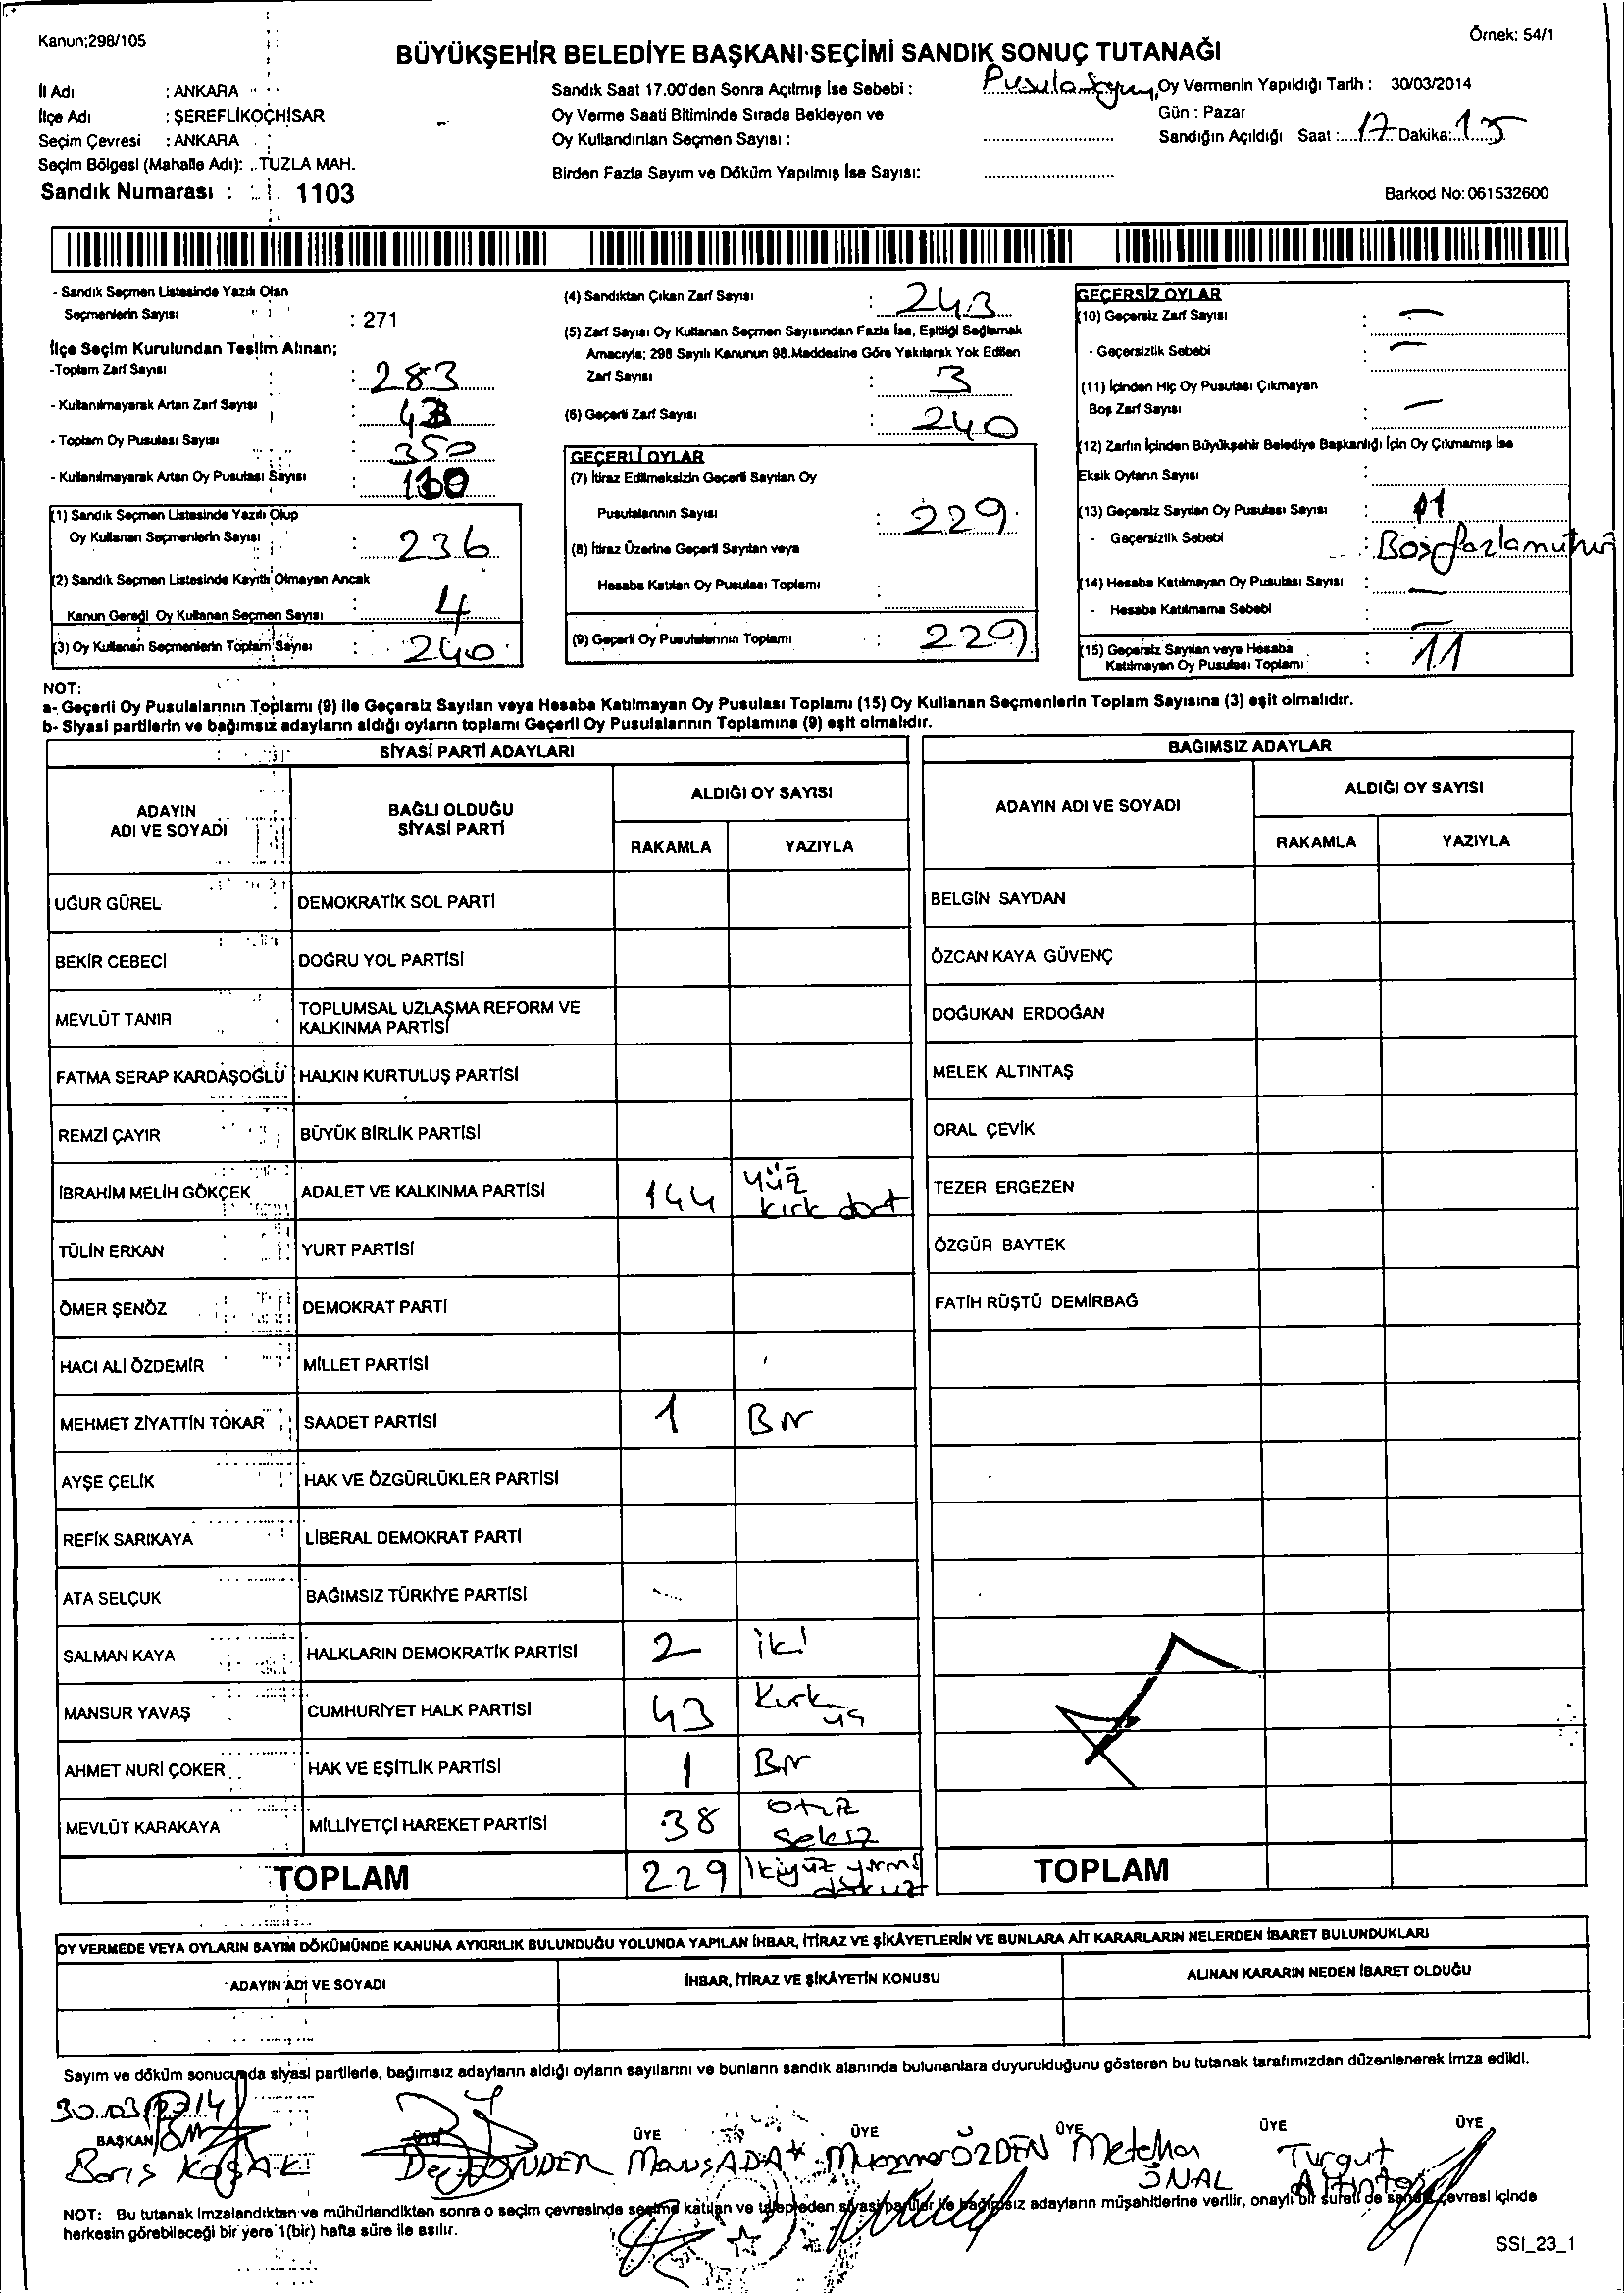 Kanun;298/105
Örnek: 54/1
BÜYÜKŞEHİR BELEDİYE BAŞKANI SEÇİMİ SANDIK SONUÇ TUTANAĞI
İl Adı : ANKARA
İlçe Adı : ŞEREFLİKOÇHİSAR
Seçim Çevresi : ANKARA
Seçim Bölgesi (Mahalle Adı): TUZLA MAH.
Sandık Numarası : 1103
Sandık Saat 17.00'den Sonra Açılmış İse Sebebi : Pusula Sayım
Oy Verme Saati Bitiminde Sırada Bekleyen ve
Oy Kullandırılan Seçmen Sayısı :
Birden Fazla Sayım ve Döküm Yapılmış İse Sayısı:
Oy Vermenin Yapıldığı Tarih : 30/03/2014
Gün : Pazar
Sandığın Açıldığı Saat : 17 Dakika: 15
Barkod No: 061532600
- Sandık Seçmen Listesinde Yazılı Olan
Seçmenlerin Sayısı : 271
İlçe Seçim Kurulundan Teslim Alınan;
-Toplam Zarf Sayısı : 283
- Kullanılmayarak Artan Zarf Sayısı : 43
- Toplam Oy Pusulası Sayısı : 350
- Kullanılmayarak Artan Oy Pusulası Sayısı :
(1) Sandık Seçmen Listesinde Yazılı Olup
Oy Kullanan Seçmenlerin Sayısı : 236
(2) Sandık Seçmen Listesinde Kayıtlı Olmayan Ancak
Kanun Gereği Oy Kullanan Seçmen Sayısı : 4
(3) Oy Kullanan Seçmenlerin Toplam Sayısı : 240
(4) Sandıktan Çıkan Zarf Sayısı : 243
(5) Zarf Sayısı Oy Kullanan Seçmen Sayısından Fazla İse, Eşitliği Sağlamak
Amacıyla; 298 Sayılı Kanunun 98.Maddesine Göre Yakılarak Yok Edilen
Zarf Sayısı : 3
(6) Geçerli Zarf Sayısı : 240
GEÇERLİ OYLAR
(7) İtiraz Edilmeksizin Geçerli Sayılan Oy
Pusulalarının Sayısı : 229
(8) İtiraz Üzerine Geçerli Sayılan veya
Hesaba Katılan Oy Pusulası Toplamı :
(9) Geçerli Oy Pusulalarının Toplamı : 229
GEÇERSİZ OYLAR
(10) Geçersiz Zarf Sayısı : —
- Geçersizlik Sebebi : —
(11) İçinden Hiç Oy Pusulası Çıkmayan
Boş Zarf Sayısı : —
(12) Zarfın İçinden Büyükşehir Belediye Başkanlığı İçin Oy Çıkmamış İse
Eksik Oyların Sayısı :
(13) Geçersiz Sayılan Oy Pusulası Sayısı : 11
- Geçersizlik Sebebi :
(14) Hesaba Katılmayan Oy Pusulası Sayısı : —
- Hesaba Katılmama Sebebi : —
(15) Geçersiz Sayılan veya Hesaba
Katılmayan Oy Pusulası Toplamı : 11
NOT:
a- Geçerli Oy Pusulalarının Toplamı (9) ile Geçersiz Sayılan veya Hesaba Katılmayan Oy Pusulası Toplamı (15) Oy Kullanan Seçmenlerin Toplam Sayısına (3) eşit olmalıdır.
b- Siyasi partilerin ve bağımsız adayların aldığı oyların toplamı Geçerli Oy Pusulalarının Toplamına (9) eşit olmalıdır.
SİYASİ PARTİ ADAYLARI
ADAYIN ADI VE SOYADI BAĞLI OLDUĞU SİYASİ PARTİ ALDIĞI OY SAYISI
RAKAMLA YAZIYLA
UĞUR GÜREL DEMOKRATİK SOL PARTİ
BEKİR CEBECİ DOĞRU YOL PARTİSİ
MEVLÜT TANIR TOPLUMSAL UZLAŞMA REFORM VE KALKINMA PARTİSİ
FATMA SERAP KARDAŞOĞLU HALKIN KURTULUŞ PARTİSİ
REMZİ ÇAYIR BÜYÜK BİRLİK PARTİSİ
İBRAHİM MELİH GÖKÇEK ADALET VE KALKINMA PARTİSİ 144 yüz kırk dört
TÜLİN ERKAN YURT PARTİSİ
ÖMER ŞENÖZ DEMOKRAT PARTİ
HACI ALİ ÖZDEMİR MİLLET PARTİSİ
MEHMET ZİYATTİN TOKAR SAADET PARTİSİ 1 Bir
AYŞE ÇELİK HAK VE ÖZGÜRLÜKLER PARTİSİ
REFİK SARIKAYA LİBERAL DEMOKRAT PARTİ
ATA SELÇUK BAĞIMSIZ TÜRKİYE PARTİSİ
SALMAN KAYA HALKLARIN DEMOKRATİK PARTİSİ 2 iki
MANSUR YAVAŞ CUMHURİYET HALK PARTİSİ 43 Kırk üç
AHMET NURİ ÇOKER HAK VE EŞİTLİK PARTİSİ 1 Bir
MEVLÜT KARAKAYA MİLLİYETÇİ HAREKET PARTİSİ 38 otuz sekiz
TOPLAM 229 ikiyüz yirmi dokuz
BAĞIMSIZ ADAYLAR
ADAYIN ADI VE SOYADI ALDIĞI OY SAYISI
RAKAMLA YAZIYLA
BELGİN SAYDAN
ÖZCAN KAYA GÜVENÇ
DOĞUKAN ERDOĞAN
MELEK ALTINTAŞ
ORAL ÇEVİK
TEZER ERGEZEN
ÖZGÜR BAYTEK
FATİH RÜŞTÜ DEMİRBAĞ
TOPLAM
OY VERMEDE VEYA OYLARIN SAYIM DÖKÜMÜNDE KANUNA AYKIRILIK BULUNDUĞU YOLUNDA YAPILAN İHBAR, İTİRAZ VE ŞİKÂYETLERİN VE BUNLARA AİT KARARLARIN NELERDEN İBARET BULUNDUKLARI
ADAYIN ADI VE SOYADI İHBAR, İTİRAZ VE ŞİKÂYETİN KONUSU ALINAN KARARIN NEDEN İBARET OLDUĞU
Sayım ve döküm sonucunda siyasi partilerle, bağımsız adayların aldığı oyların sayılarını ve bunların sandık alanında bulunanlara duyurulduğunu gösteren bu tutanak tarafımızdan düzenlenerek imza edildi.
30.03.2014
BAŞKAN ÜYE ÜYE ÜYE ÜYE ÜYE
Barış ÖZDEN Metehan ÖNAL Turgut
NOT: Bu tutanak imzalandıktan ve mühürlendikten sonra o seçim çevresinde seçime katılan ve talepleden siyasi partiler ile bağımsız adayların müşahitlerine verilir, onaylı bir sureti de sandık çevresi içinde
herkesin görebileceği bir yere 1(bir) hafta süre ile asılır.
SSI_23_1